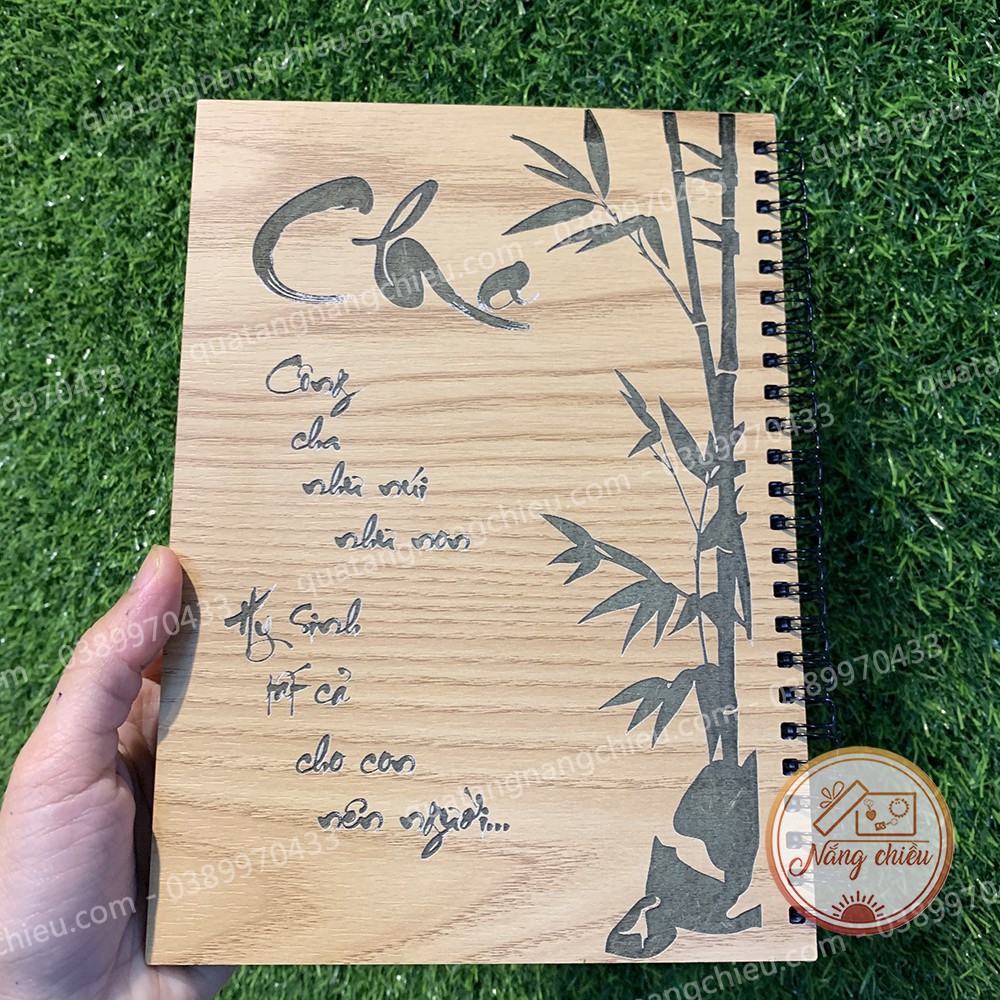 Cha
Công
cha
như núi
như non
Hy Sinh
tất cả
cho con
nên người...
Nắng chiều
quatangnangchieu.com - 0389970433